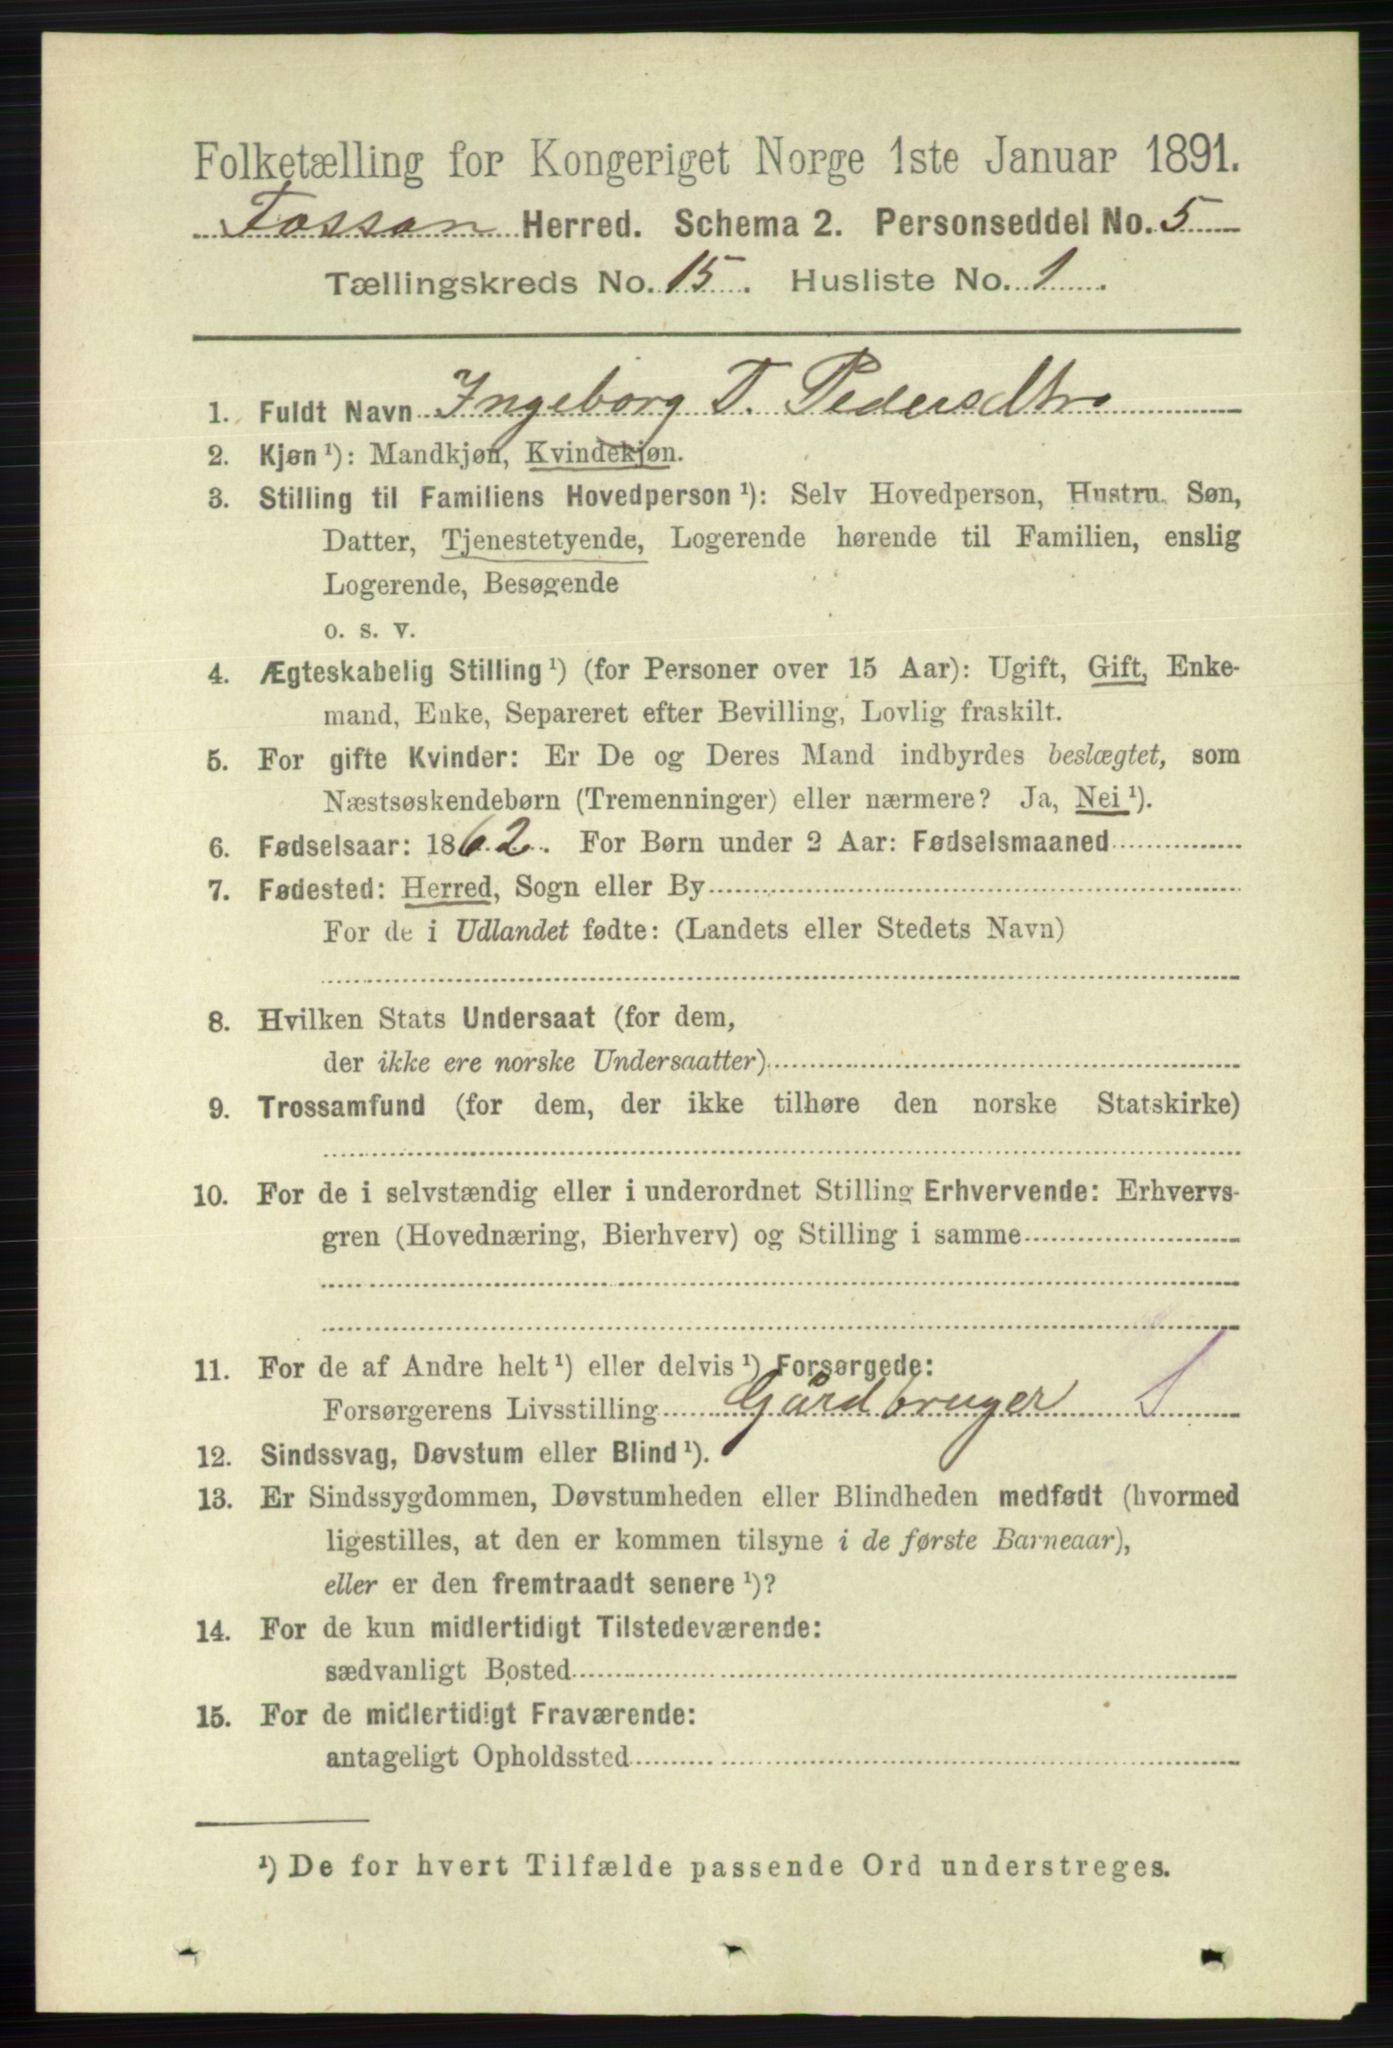 Folketælling for Kongeriget Norge 1ste Januar 1891.
Fossan Herred. Schema 2. Personseddel No. 5
Tællingskreds No. 15. Husliste No. 1.
1. Fuldt Navn Ingeborg T. Pedersdtr.
2. Kjøn ¹): Mandkjøn, Kvindekjøn.
3. Stilling til Familiens Hovedperson ¹): Selv Hovedperson, Hustru, Søn,
Datter, Tjenestetyende, Logerende hørende til Familien, enslig
Logerende, Besøgende
o. s. v.
4. Ægteskabelig Stilling ¹) (for Personer over 15 Aar): Ugift, Gift, Enke-
mand, Enke, Separeret efter Bevilling, Lovlig fraskilt.
5. For gifte Kvinder: Er De og Deres Mand indbyrdes beslægtet, som
Næstsøskendebørn (Tremenninger) eller nærmere? Ja, Nei ¹).
6. Fødselsaar: 1862. For Børn under 2 Aar: Fødselsmaaned
7. Fødested: Herred, Sogn eller By
For de i Udlandet fødte: (Landets eller Stedets Navn)
8. Hvilken Stats Undersaat (for dem,
der ikke ere norske Undersaatter)
9. Trossamfund (for dem, der ikke tilhøre den norske Statskirke)
10. For de i selvstændig eller i underordnet Stilling Erhvervende: Erhvervs-
gren (Hovednæring, Bierhverv) og Stilling i samme
11. For de af Andre helt ¹) eller delvis ¹) Forsørgede:
Forsørgerens Livsstilling Gårdbruger
12. Sindssvag, Døvstum eller Blind ¹).
13. Er Sindssygdommen, Døvstumheden eller Blindheden medfødt (hvormed
ligestilles, at den er kommen tilsyne i de første Barneaar),
eller er den fremtraadt senere ¹)?
14. For de kun midlertidigt Tilstedeværende:
sædvanligt Bosted
15. For de midlertidigt Fraværende:
antageligt Opholdssted
¹) De for hvert Tilfælde passende Ord understreges.